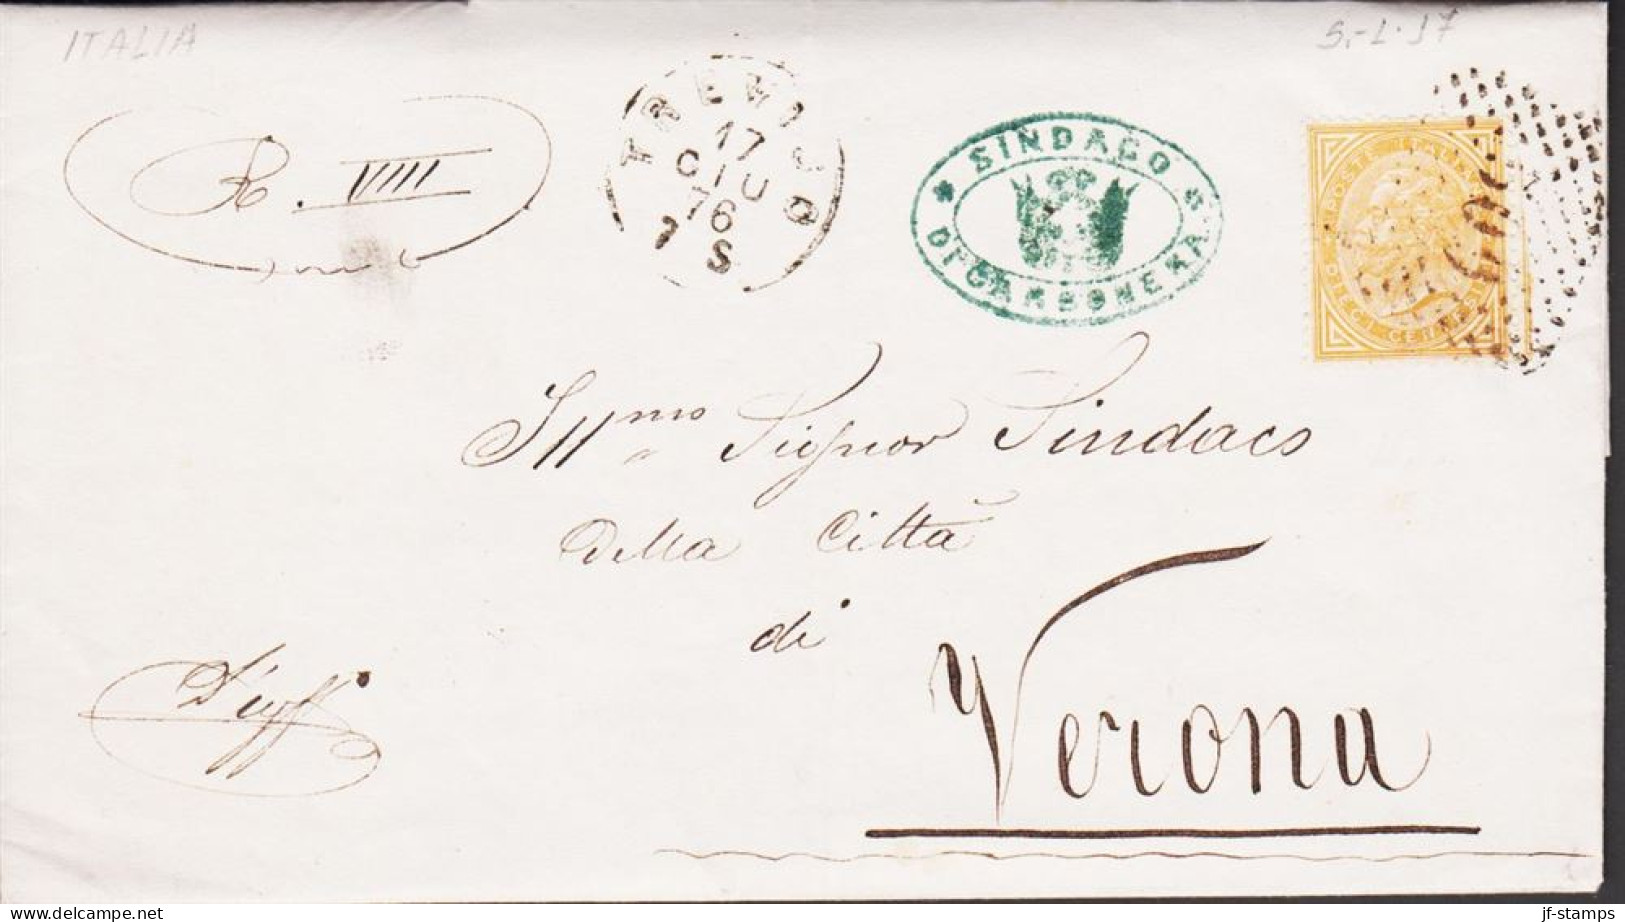 ITALIA
R. VIIII
TREVISO
17
GIU
76
7 S
SINDACO
DI CARBONERA
POSTE ITALIANE
DIECI CENTESIMI
Ill.mo Signor Sindaco
Della Città
di
Verona
D'uff.
jf-stamps